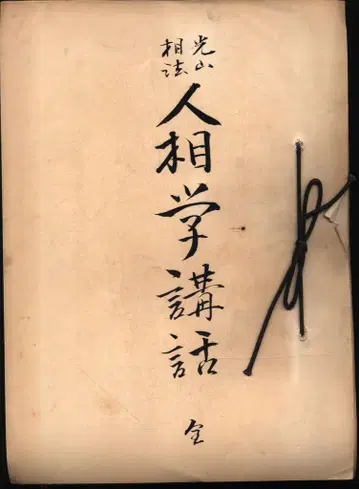 光山
相法
人相学講話
全